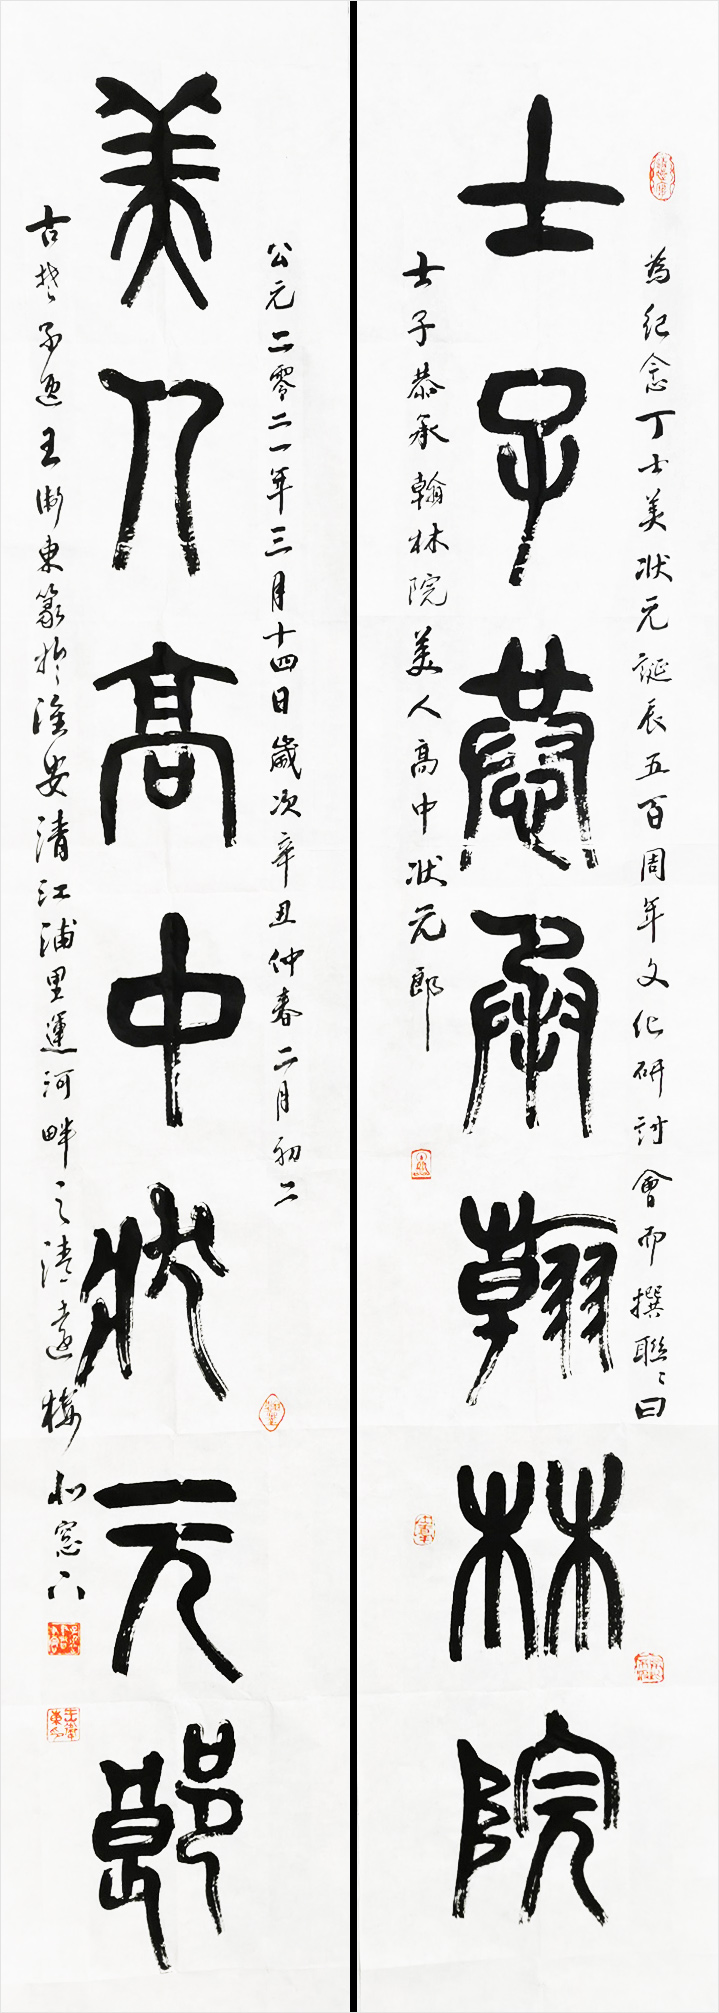 為紀念丁士美狀元誕辰五百周年文化研討會而撰聯曰
士子恭承翰林院
士子恭承翰林院美人高中狀元郎
公元二零二一年三月十四日歲次辛丑仲春二月初二
美人高中狀元郎
古楚 王 東篆於淮安清江浦里運河畔之清遠樓北窓下